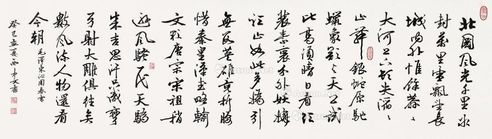 北國風光千里冰
封萬里雪飄望長
城內外惟餘莽莽
大河上下頓失滔滔
山舞銀蛇原馳
蠟象欲與天公試
比高須晴日看紅
裝素裹分外妖嬈
江山如此多嬌引
無數英雄競折腰
惜秦皇漢武略輸
文采唐宗宋祖稍
遜風騷一代天驕
成吉思汗只識彎
弓射大雕俱往矣
數風流人物還看
今朝 毛澤東沁園春雪
癸巳